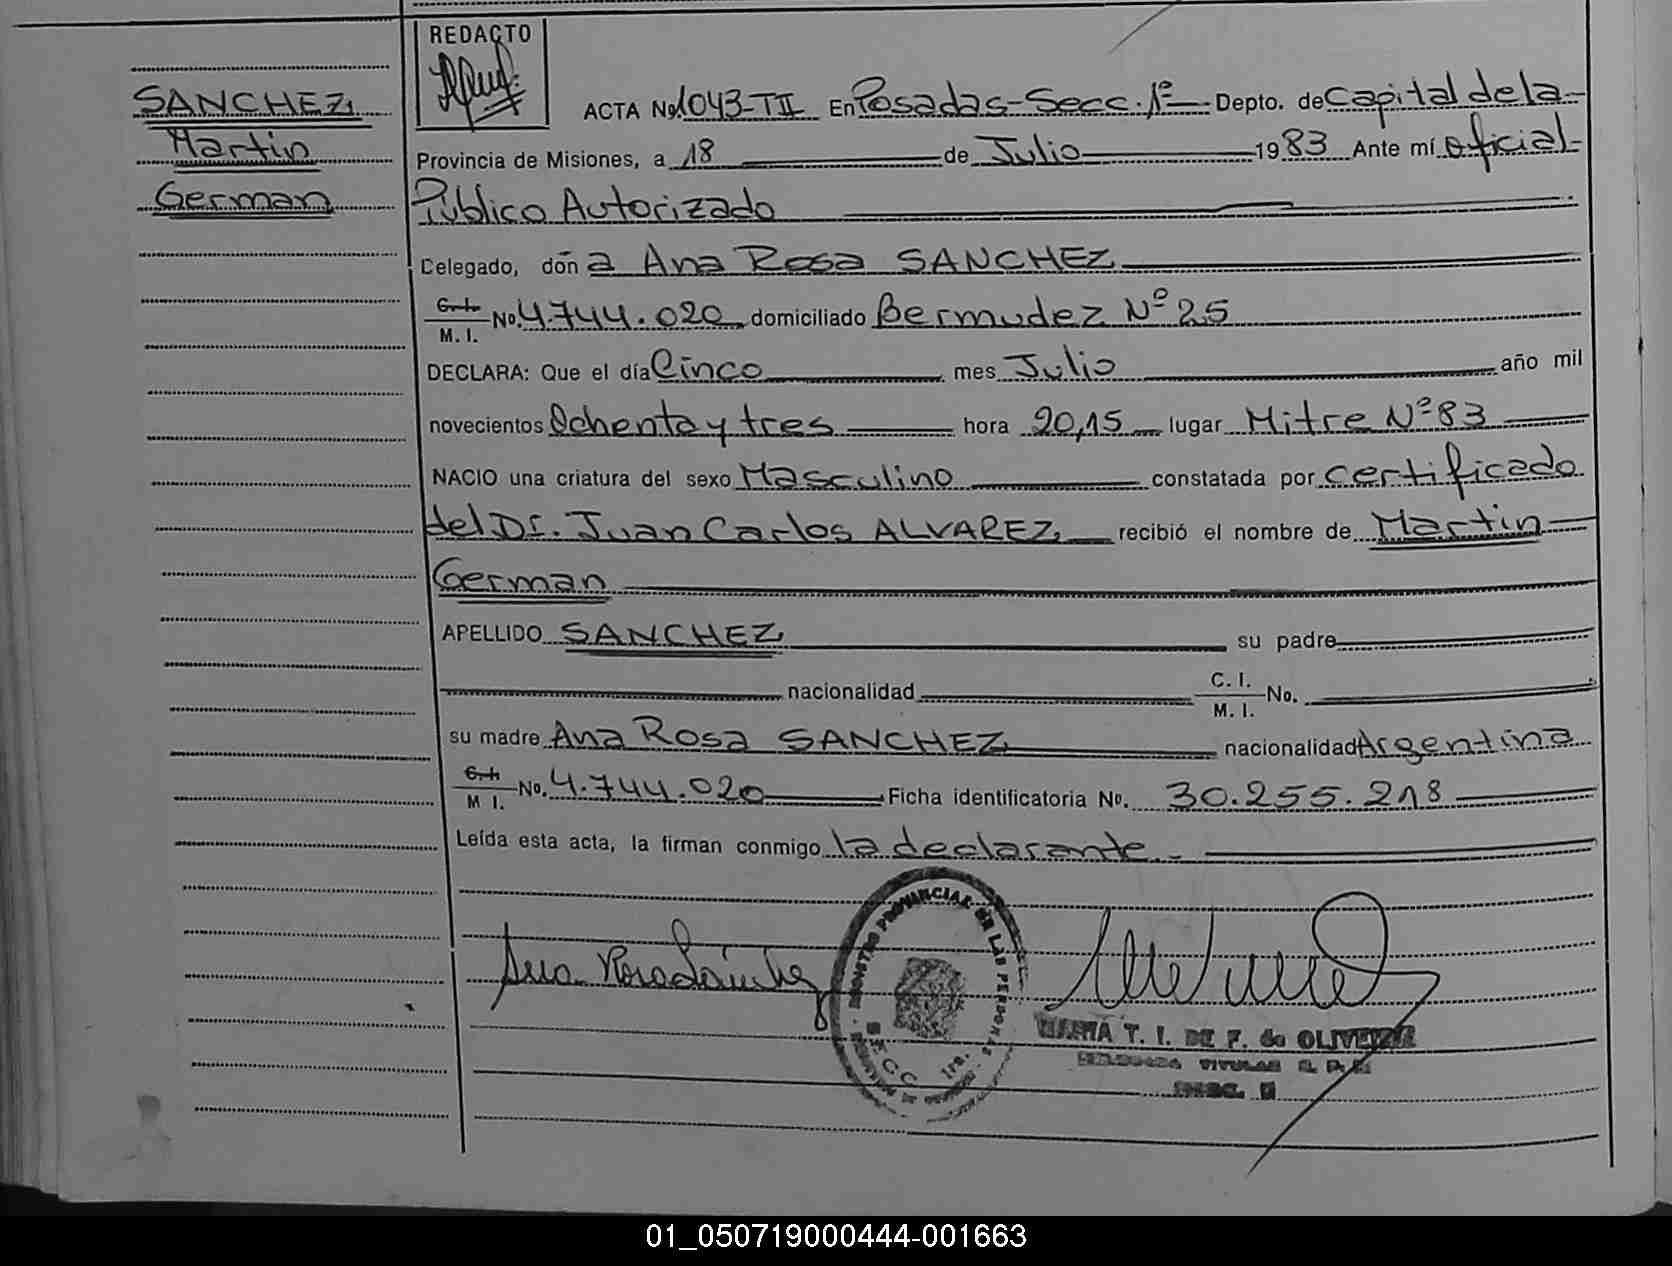 SANCHEZ
Martin
German
REDACTO
ACTA No. 1043-TII En Posadas-Secc. 1º Depto. de Capital de la
Provincia de Misiones, a 18 de Julio 1983 Ante mí Oficial
Público Autorizado
Delegado, don a Ana Rosa SANCHEZ
C.I. M. I. No. 4.744.020 domiciliado Bermudez Nº 25
DECLARA: Que el día Cinco mes Julio año mil
novecientos Ochenta y tres hora 20,15 lugar Mitre Nº 83
NACIO una criatura del sexo Masculino constatada por certificado
del Dr. Juan Carlos ALVAREZ recibió el nombre de Martin
German
APELLIDO SANCHEZ su padre
nacionalidad C. I. M. I. No.
su madre Ana Rosa SANCHEZ nacionalidad Argentina
C.I. M I. No. 4.744.020 Ficha identificatoria No. 30.255.218
Leída esta acta, la firman conmigo la declarante.-
Ana Rosa Sánchez
REGISTRO PROVINCIAL DE LAS PERSONAS
SECC. 1ra.
MARIA T. I. DE F. de OLIVEIRA
TITULAR
01_050719000444-001663